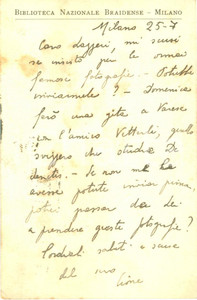 BIBLIOTECA NAZIONALE BRAIDENSE - MILANO
Milano 25-7
Caro mi scusi
se insisto per le ormai
famose fotografie. - Potrebbe
inviarmele? - Domenica
farò una gita a Varese
con l'amico
che studia De
- Se non me le
avesse potute inviar prima,
potrei passar da lei
a prendere queste fotografie?
Cordiali saluti e scusi
dal suo